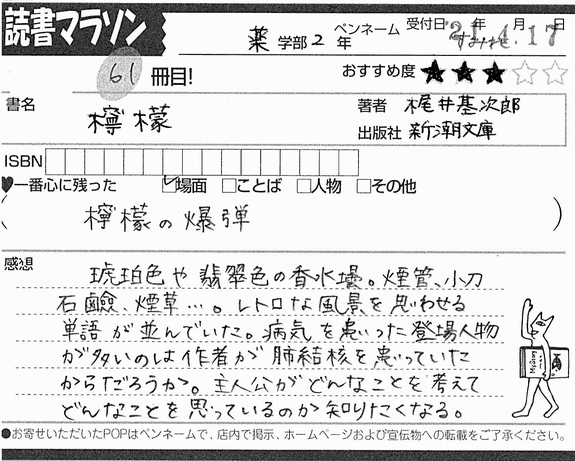 読書マラソン
薬 学部 2 年
ペンネーム すみれ
受付日 年 月 日
21.4.17
61 冊目!
おすすめ度 ★★★☆☆
書名 檸檬
著者 梶井基次郎
出版社 新潮文庫
ISBN
♥一番心に残った ☑場面 □ことば □人物 □その他
( 檸檬の爆弾 )
感想
琥珀色や翡翠色の香水壜。煙管、小刀
石鹸、煙草…。レトロな風景を思わせる
単語が並んでいた。病気を患った登場人物
が多いのは作者が肺結核を患っていた
からだろうか。主人公がどんなことを考えて
どんなことを思っているのか知りたくなる。
●お寄せいただいたPOPはペンネームで、店内で掲示、ホームページおよび宣伝物への転載をご了承ください。